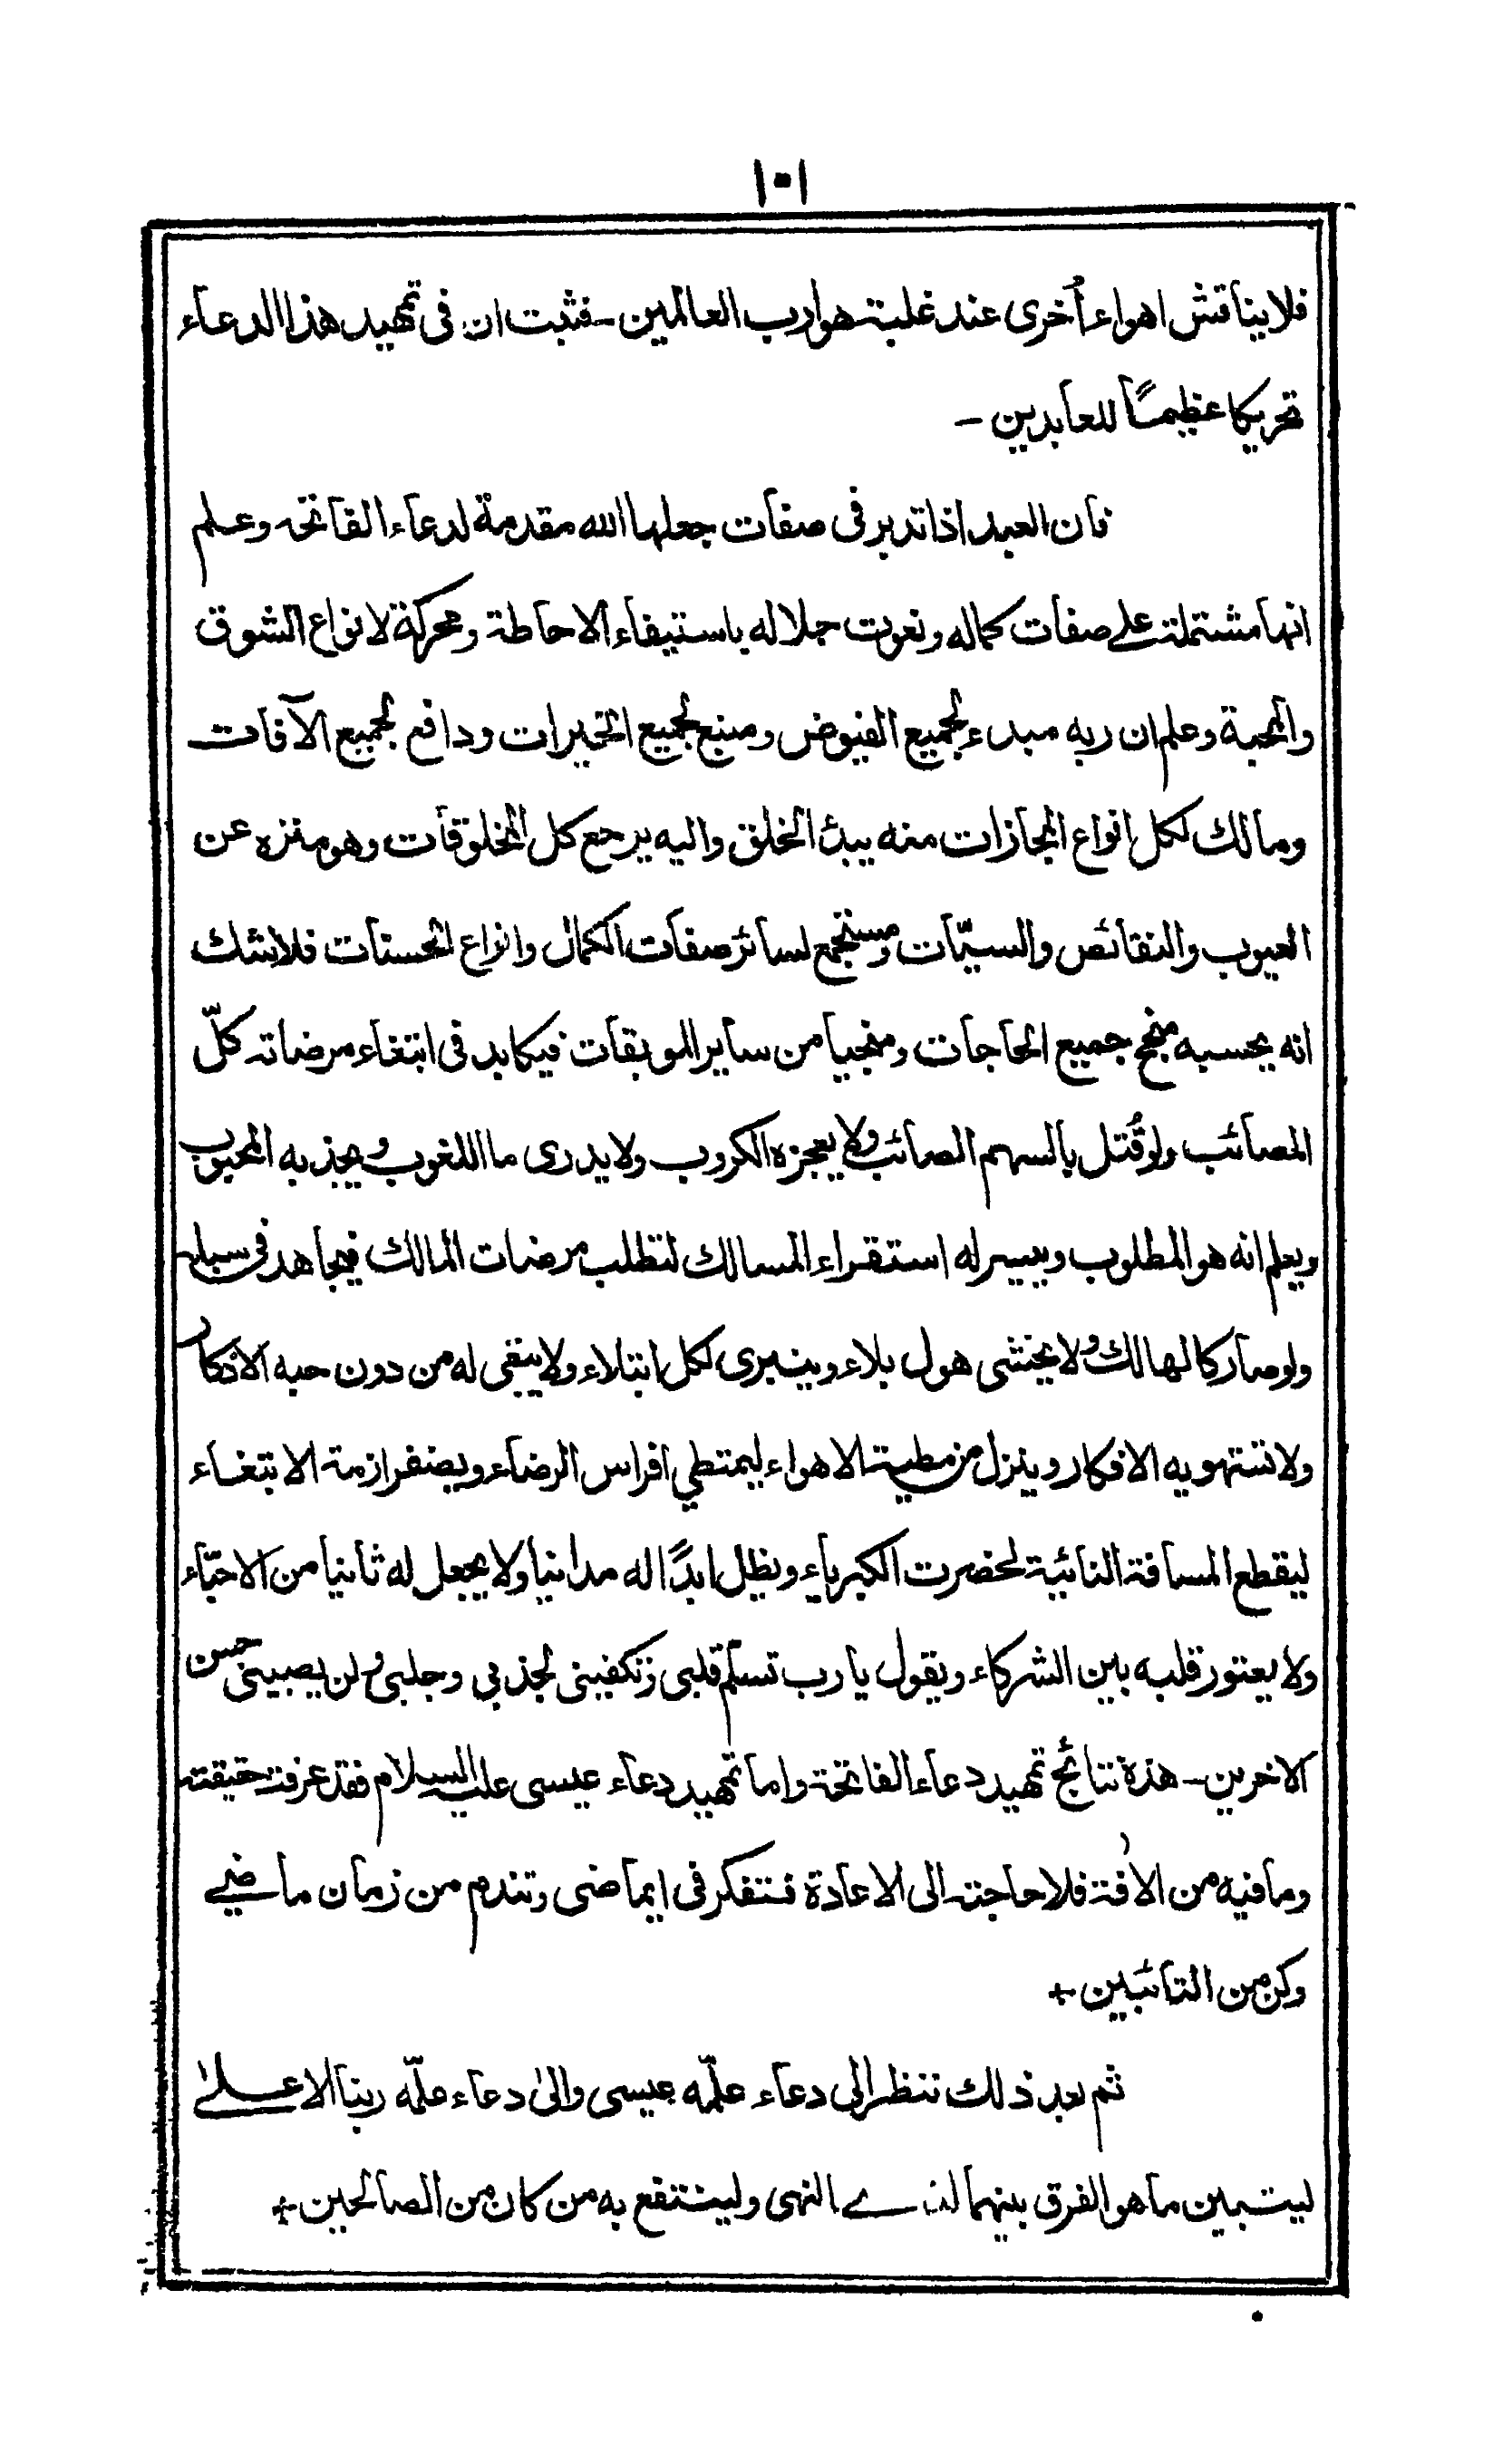 ١٠١
فلا يناقش اهواء أخرى عند غلبة هوا رب العالمين - فثبت ان فى تمهيد هذا الدعاء
تحريكا عظيمًا للعابدين -
فان العبد اذا تدبر فى صفات جعلها الله مقدمة لدعاء الفاتحة وعلم
انها مشتملة على صفات كماله ونعوت جلاله باستيفاء الاحاطة ومحركة لانواع الشوق
والمحبة وعلم ان ربه مبدء لجميع الفيوض ومنبع لجميع الخيرات ودافع لجميع الآفات
ومالك لكل انواع المجازات منه يبدئ الخلق واليه يرجع كل المخلوقات وهو منزه عن
العيوب والنقائص والسيّات ومستجمع لسائر صفات الكمال وانواع الحسنات فلا شك
انه يحسبه منجح جميع الحاجات ومنجيا من ساير الموبقات فيكابد فى ابتغاء مرضاته كلّ
المصائب ولو قُتل بالسهم الصائب ولا يعجزه الكروب ولا يدرى ما اللغوب ويجذبه المحبوب
ويعلم انه هو المطلوب وييسر له استقراء المسالك لتطلب مرضات المالك فيجاهد فى سبله
ولو صار كالهالك ولا يخشى هول بلاء وينبرى لكل ابتلاء ولا يبقى له من دون حبه الاذكار
ولا تستهويه الافكار وينزل من مطية الاهواء ليمتطي افراس الرضاء ويضفر ازمة الابتغاء
ليقطع المسافة النائية لحضرت الكبرياء ويظل ابدًا له مدانيا ولا يجعل له ثانيا من الاحبّاء
ولا يعتور قلبه بين الشركاء ويقول يا رب تسلّم قلبى وتكفينى لجذبي وجلبى ولن يصبينى حسن
الاخرين - هذه نتائج تمهيد دعاء الفاتحة واما تمهيد دعاء عيسى عليه السلام فقد عرفت حقيقته
وما فيه من الافة فلا حاجة الى الاعادة فتفكر فى ايماضى وتندم من زمان ماضے
وكن من التائبين +
ثم بعد ذلك ننظر الى دعاء علّمه عيسى والىٰ دعاء علّمه ربنا الاعلىٰ
ليتبين ما هو الفرق بينهما لذے النهى ولينتفع به من كان من الصالحين +